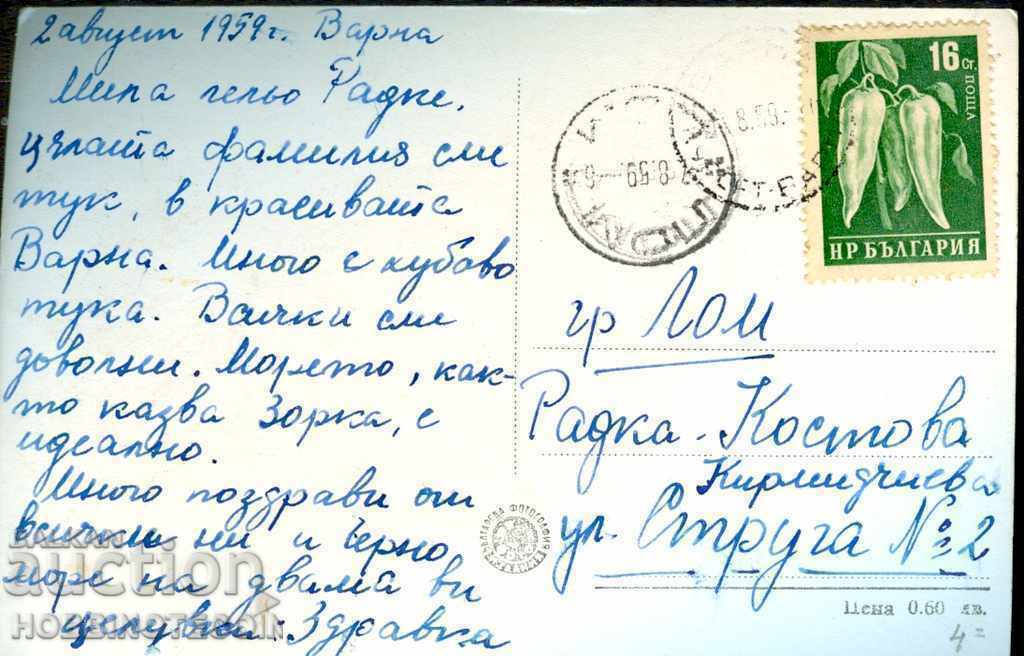 2 август 1959 г. Варна
Мила лельо Радке,
цялата фамилия сме
тук, в красивата
Варна. Много е хубаво
тука. Всички сме
доволни. Морето, как-
то казва Зорка, е
идеално.
Много поздрави от
всички ни и Черно
море на двама ви
Целувки: Здравка
16 Ст.
ПОЩА
НР БЪЛГАРИЯ
8.59
гр Лом
Радка Костова
Кирмидчиева
ул. Струга № 2
БЪЛГАРСКА ФОТОГРАФИЯ
Цена 0.60 лв.
4=
auction
HOBBINOTEBOOK